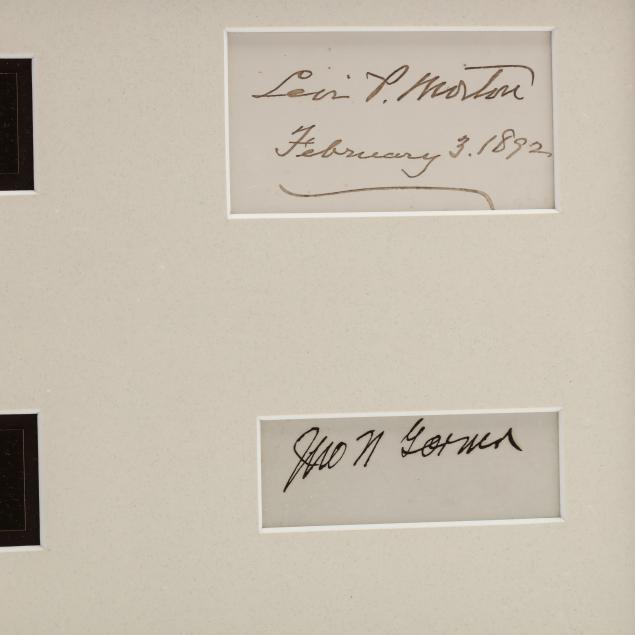 Levi P. Morton
February 3. 1892
Jno N Garner